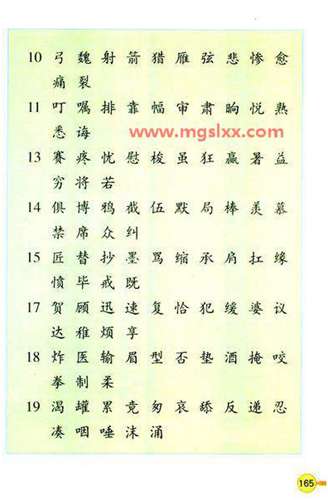 10 弓 魏 射 箭 猎 雁 弦 悲 惨 愈
痛 裂
11 叮 嘱 排 靠 幅 审 肃 晌 悦 熟
悉 诲
www.mgslxx.com
13 赛 疼 忧 慰 梭 虽 狂 赢 暑 益
穷 将 若
14 俱 博 鸦 截 伍 默 局 棒 羡 慕
禁 席 众 纠
15 匠 替 抄 墨 骂 缩 承 肩 扛 缘
愤 毕 戒 既
17 贺 顾 迅 速 复 恰 犯 缓 婆 议
达 稚 烦 享
18 炸 医 输 眉 型 否 垫 酒 掩 咬
拳 制 柔
19 渴 罐 累 竟 匆 哀 舔 反 递 忍
凑 咽 唾 沫 涌
165